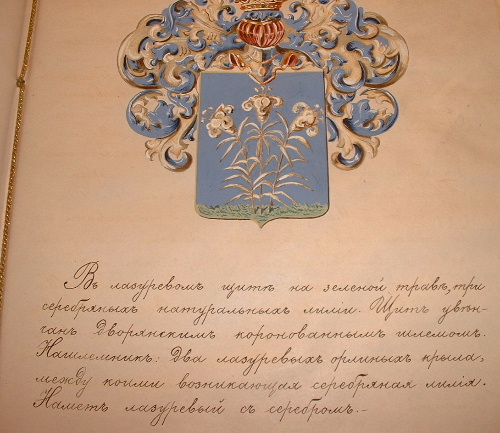 Въ лазуревомъ щитѣ на зеленой травѣ, три
серебряныхъ натуральныхъ лиліи. Щитъ увѣн-
чанъ Дворянскимъ коронованнымъ шлемомъ.
Нашлемникъ: Два лазуревыхъ орлиныхъ крыла,
между коими возникающая серебряная лилія.
Наметъ лазуревый съ серебромъ.-